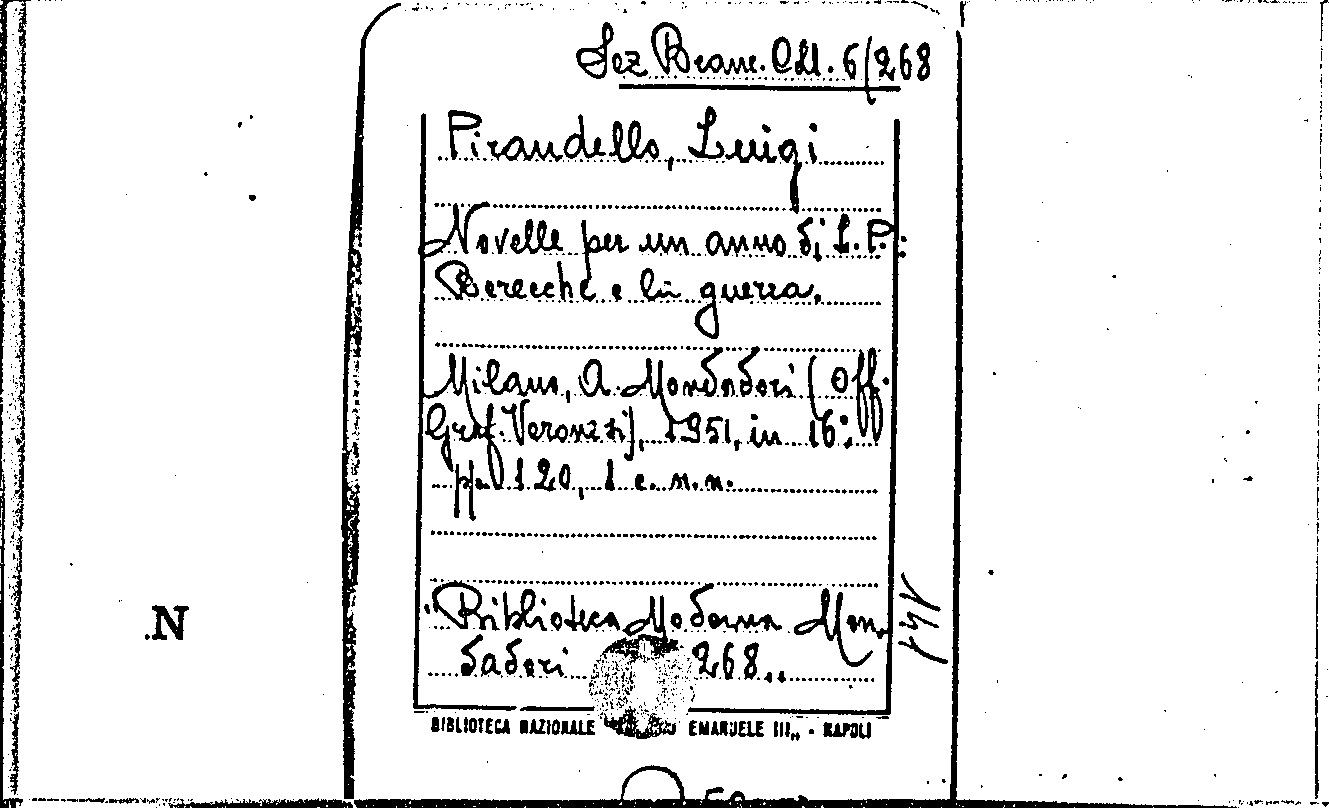 Sez Branc. CM. 6/268
Pirandello, Luigi
Novelle per un anno di L. P.:
Berecche e la guerra.
Milano, A. Mondadori (Off.
Graf. Veronesi), 1951, in 16°,
pp. 120, 1 c. n. n.
"Biblioteca Moderna Mon-
dadori 268„.
BIBLIOTECA NAZIONALE EMANUELE III„ - NAPOLI
.N